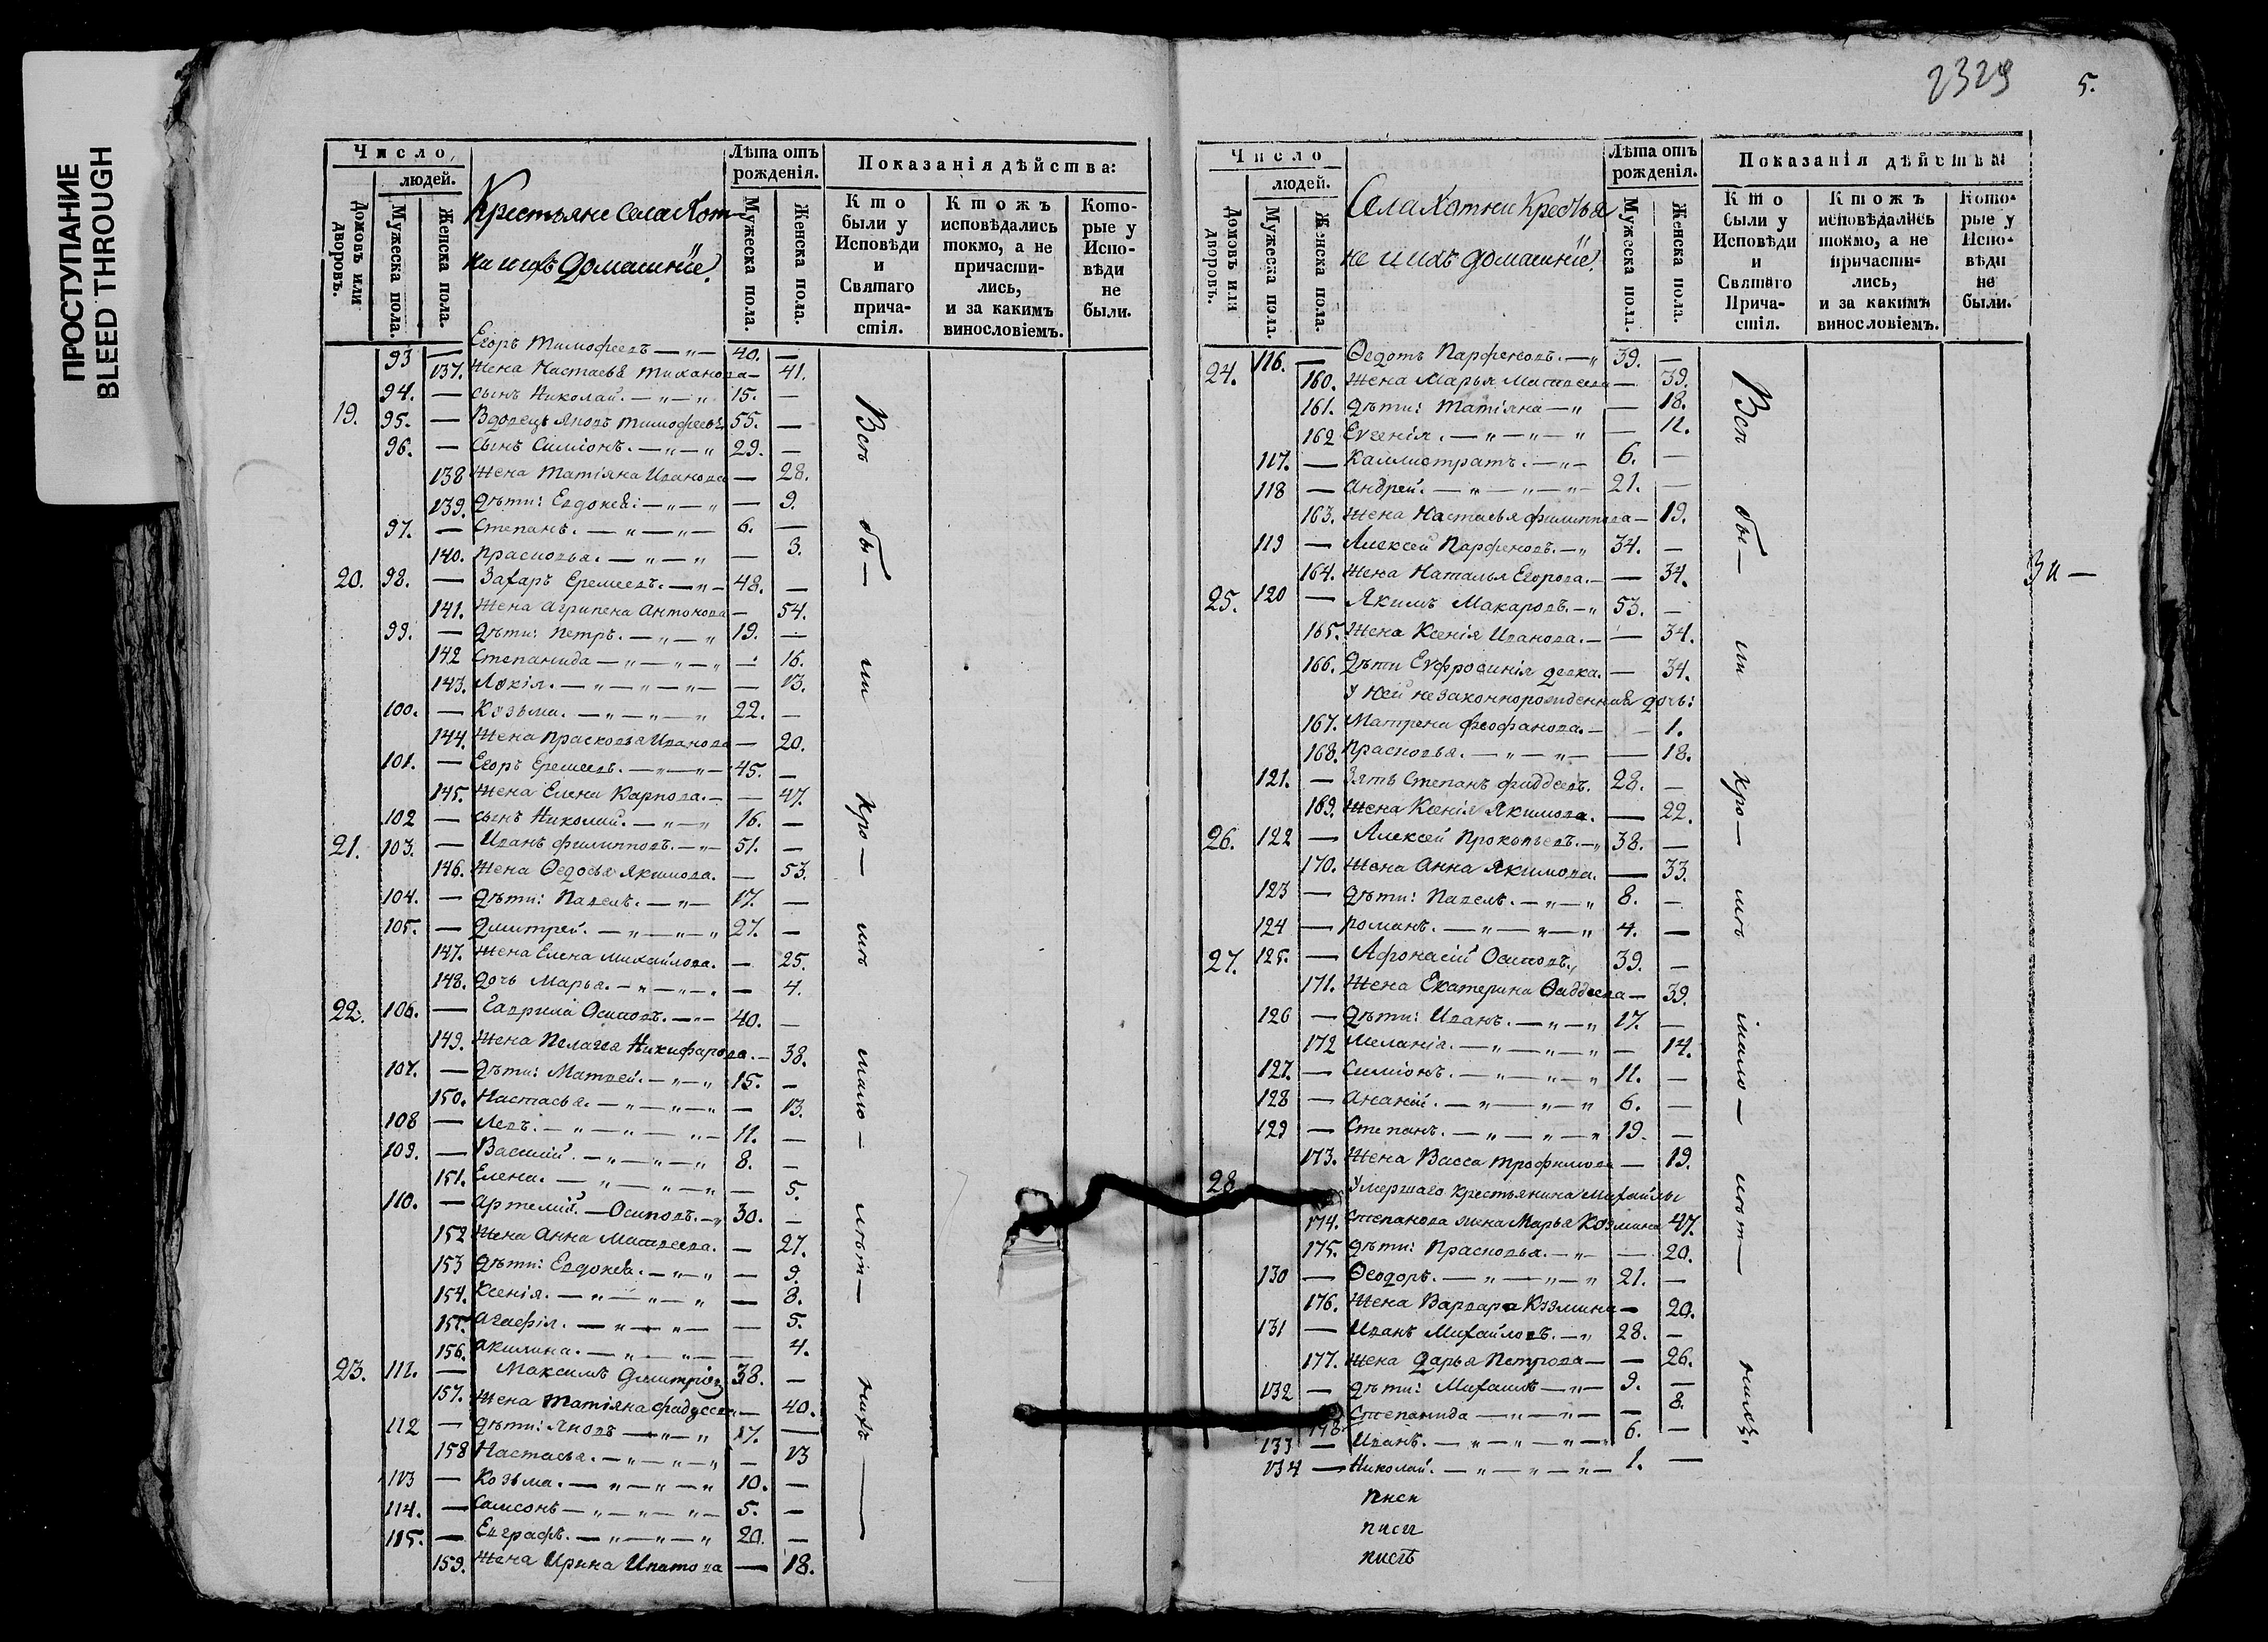 ПРОСТУПАНИЕ
BLEED THROUGH
Число,
людей.
Домовъ или дворовъ.
Мужеска пола.
Женска пола.
Крестьяне Села Хот-
ни ихъ домашнїе.
Лѣта отъ рожденія.
Мужеска пола.
Женска пола.
Показанія дѣйства:
Кто были у Исповѣди и Святаго причастія.
Ктожъ исповѣдались токмо, а не причастились, и за какимъ винословіемъ.
Которые у Исповѣди не были.
93 — Егоръ Тимофеевъ — „ — 40. —
137. Жена Настасья Тиханова — 41.
94. — сынъ Николай. — „ — „ 15. —
19. 95. — Вдовецъ Яковъ Тимофеевъ 55. —
96. — Сынъ Симіонъ. — „ — „ 29. —
138 Жена Татіяна Иванова — 28.
139. Дѣти: Евдокея: — „ — „ — 9.
97. — Степанъ. — „ — „ — 6. —
140. Прасковья. — „ — „ — 3.
20. 98. — Захаръ Еремеевъ. — „ — 48. —
141. Жена Агрипена Антонова — 54.
99. — Дѣти: Петръ. — „ — „ 19. —
142 Степанида — „ — „ — „ — 16.
143. Лукія. — „ — „ — „ — — 13.
100. — Козьма. — „ — „ — „ 22. —
144. Жена Прасковья Иванова — 20.
101. — Егоръ Еремеевъ. — „ — „ — 45. —
145. Жена Елена Карпова. — — 47.
102 — сынъ Николай. — „ — „ 16. —
21. 103. — Иванъ Филипповъ. — „ — 51. —
146. Жена Ѳедосья Якимова. — 53.
104. — Дѣти: Павелъ. — „ — 17. —
105. — Дмитрей. — „ — „ — „ 27. —
147. Жена Елена Михайлова. — 25.
148. дочь Марья. — „ — „ — „ — 4.
22. 106. — Гаврила Осиповъ. — „ — 40. —
149. Жена Пелагея Никифарова. — 38.
107. — Дѣти: Матвей. — „ — „ 15. —
150. Настасья. — „ — „ — „ — — 13.
108 — Левъ. — „ — „ — „ — 11. —
109. — Василий. — „ — „ — „ 8. —
151. Елена. — „ — „ — „ — 5.
110. — Артемий. — Осиповъ. — „ 30. —
152 Жена Анна Матвеева. — 27.
153 Дѣти: Евдокея. — „ — „ — 9.
154. Ксенія. — „ — „ — „ — 8.
155. Агафія. — „ — „ — — 5.
156. Акилина. — „ — „ — — 4.
23. 111. — Максимъ Дмитріев 38. —
157. Жена Татіяна Фадѣева — 40.
112 — Дѣти: Яковъ — „ — „ 17. —
158 Настасья. — „ — „ — „ — 13
113 — Козьма. — „ — „ — „ 10. —
114. — Самсонъ — „ — „ — „ — 5. —
115. — Евграфъ. — „ — „ — „ 20. —
159. Жена Ирина Ипатова — 18.
Всѣ бы — ли кро — мѣ мало — лѣт — нихъ —
2329
5.
Число
людей.
Домовъ или дворовъ.
Мужеска пола.
Женска пола.
Села Хотни Крестья
не и ихъ домашнїе.
Лѣта отъ рожденія.
Мужеска пола.
Женска пола.
Показанія дѣйства:
Кто были у Исповѣди и Святаго Причастія.
Ктожъ исповѣдались токмо, а не причастились, и за какимъ винословіемъ.
Которые у Исповѣди не были.
24. 116. — Ѳедотъ Парфеновъ. — „ 39. —
160. Жена Марья Матвеева — 39.
161. Дѣти: Татіяна — „ — 18.
162 Евгенія. — „ — „ — „ — 11.
117. — Каллистратъ. — „ — 6. —
118 — Андрей. — „ — „ — „ — 21. —
163. Жена Настасья Филиппова — 19.
119 — Алексей Парфеновъ. — „ 34. —
164. Жена Наталья Егорова. — — 34.
25. 120 — Якимъ Макаровъ. — „ 53. —
165. Жена Ксенія Иванова. — — 34.
166. Дѣти Евфросинія девка. — 34.
У ней незаконнорожденная дочь:
167. Матрена Феофанова. — — 1.
168. Прасковья. — „ — „ — — 18.
121. — Зять Степанъ Фаддеевъ. 28. —
169. Жена Ксенія Якимова. — 22.
26. 122 — Алексей Прокопьевъ. — „ 38. —
170. Жена Анна Якимова. — 33.
123 — Дѣти: Павелъ. — „ — „ 8. —
124 — Романъ. — „ — „ — „ 4. —
27. 125. — Афонасій Осиповъ. „ 39. —
171. Жена Екатерина Ѳаддеева — 39.
126 — Дѣти: Иванъ. — „ — „ — 17. —
172 Меланія. — „ — „ — „ — 14.
127. — Симіонъ. — „ — „ — „ 11. —
128 — Ананій. — „ — „ — „ 6. —
129 — Степанъ. — „ — „ — „ 19. —
173. Жена Васса Трофимова — 19.
28 Умершаго крестьянина Михайлы
174. Степанова жена Марья Козмина 47.
175. Дѣти: Прасковья. — „ — — 20.
130 — Ѳеодоръ. — „ — „ — „ 21. —
176. Жена Варвара Козмина — 20.
131 — Иванъ Михайловъ. — „ 28. —
177. Жена Дарья Петрова — — 26.
132 — Дѣти: Михаилъ — „ — 9. —
178. Степанида — „ — „ — — 8.
133 — Иванъ. — „ — „ — „ — 6. —
134 — Николай. — „ — „ — „ — 1. —
Всѣ бы — ли кро — мѣ мало — лѣт — нихъ.
Зи —
писи
писи
писѣ